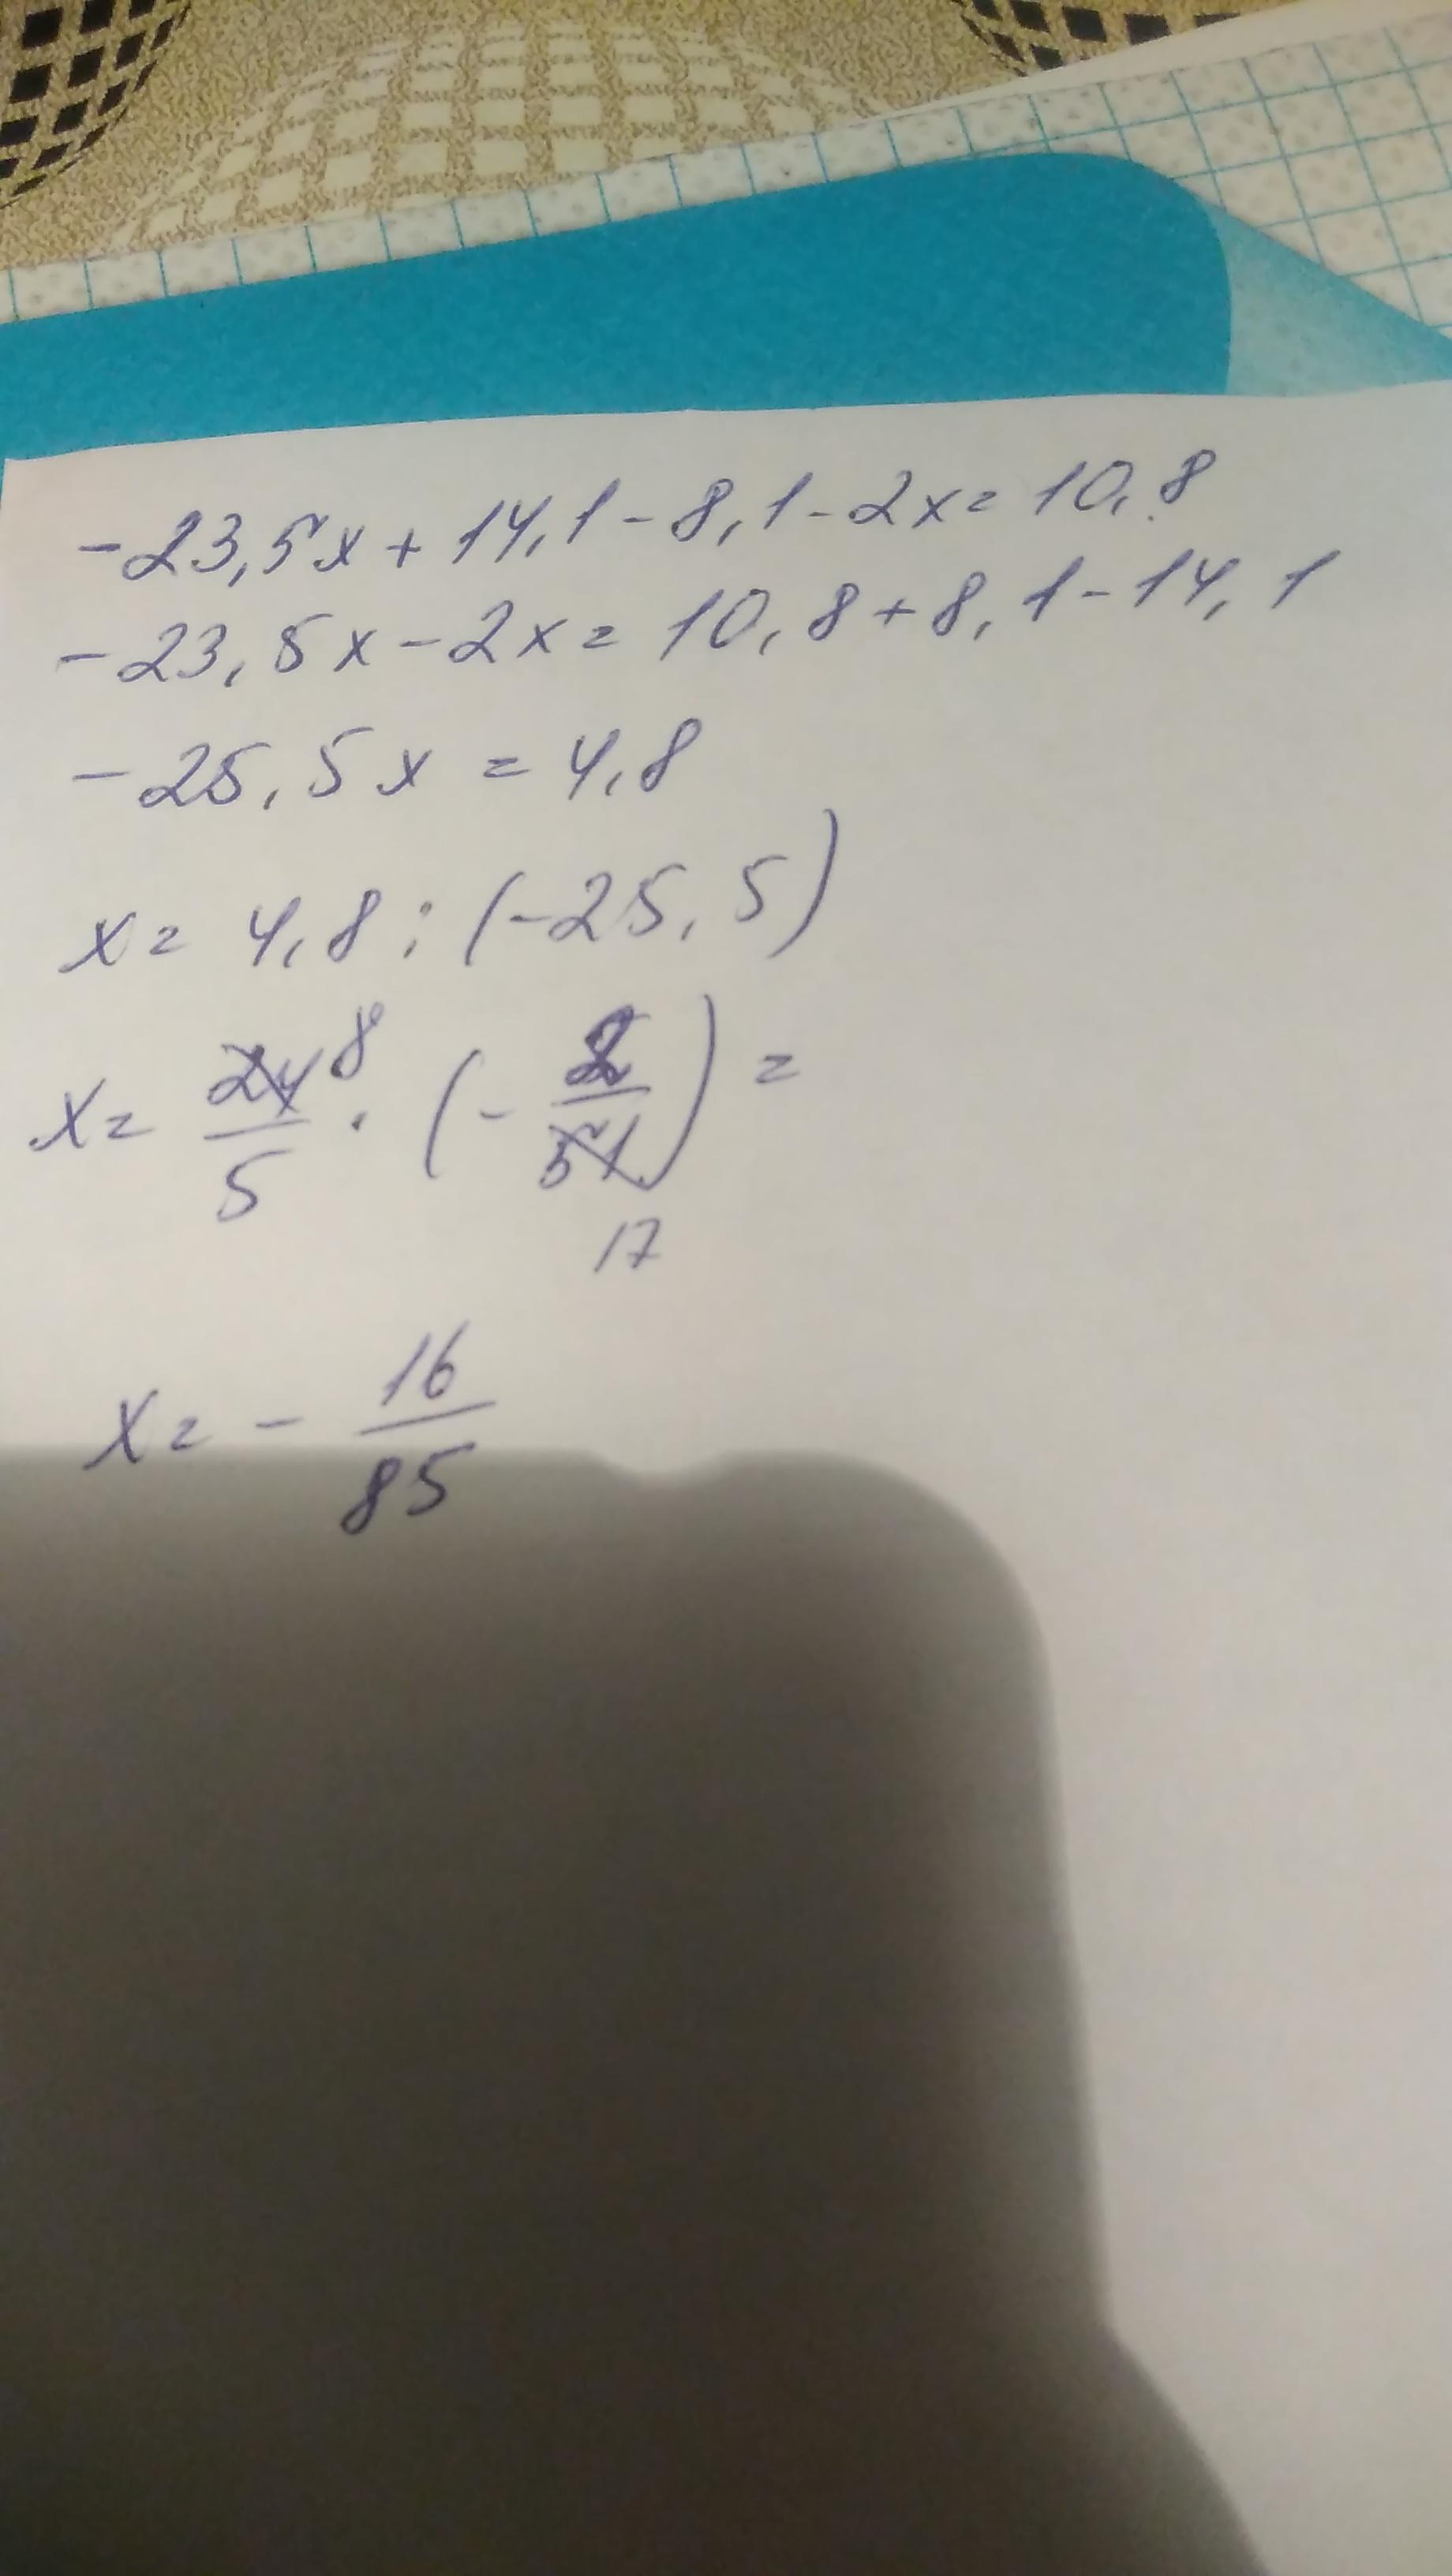 -23,5x+14,1-8,1-2x=10,8
-23,5x-2x=10,8+8,1-14,1
-25,5x=4,8
x=4,8:(-25,5)
x= 24/5 8 · (- 2/51) =
17
x=- 16/85